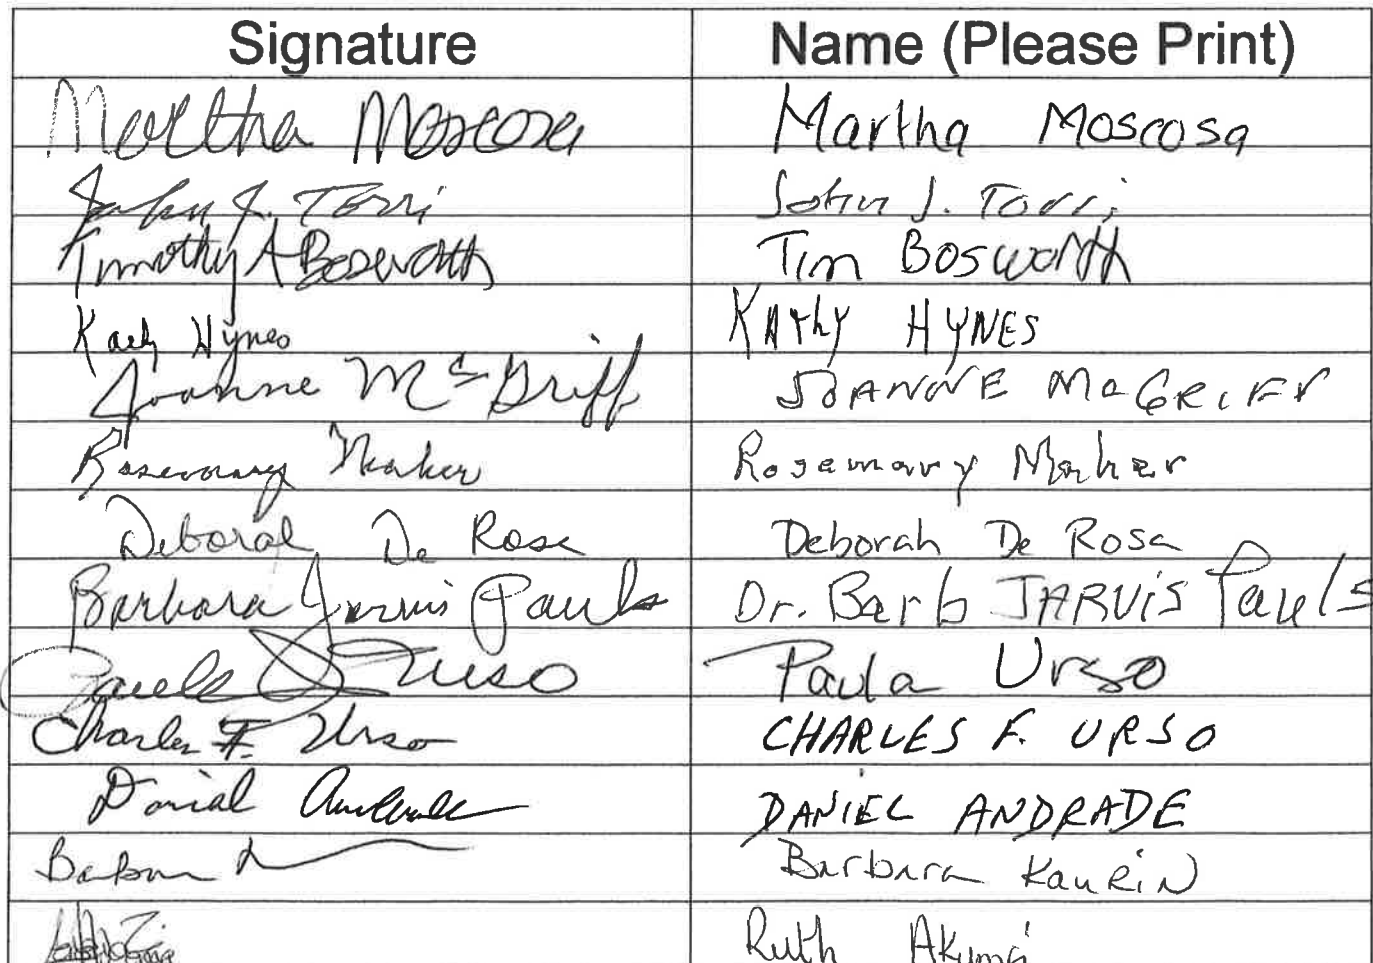 Signature Name (Please Print)
Martha Moscosa Martha Moscosa
John J. Torri John J. Torri
Timothy A Bosworth Tim Bosworth
Kathy Hynes KAthy HYNES
Joanne McGriff JOANNE McGRIFF
Rosemary Maher Rosemary Maher
Deborah De Rosa Deborah De Rosa
Barbara Jarvis Pauls Dr. Barb JARViS Pauls
Paula Urso Paula Urso
Charles F. Urso CHARLES F. URSO
Daniel Andrade DANIEL ANDRADE
Barbara Barbara Kaurin
Ruth